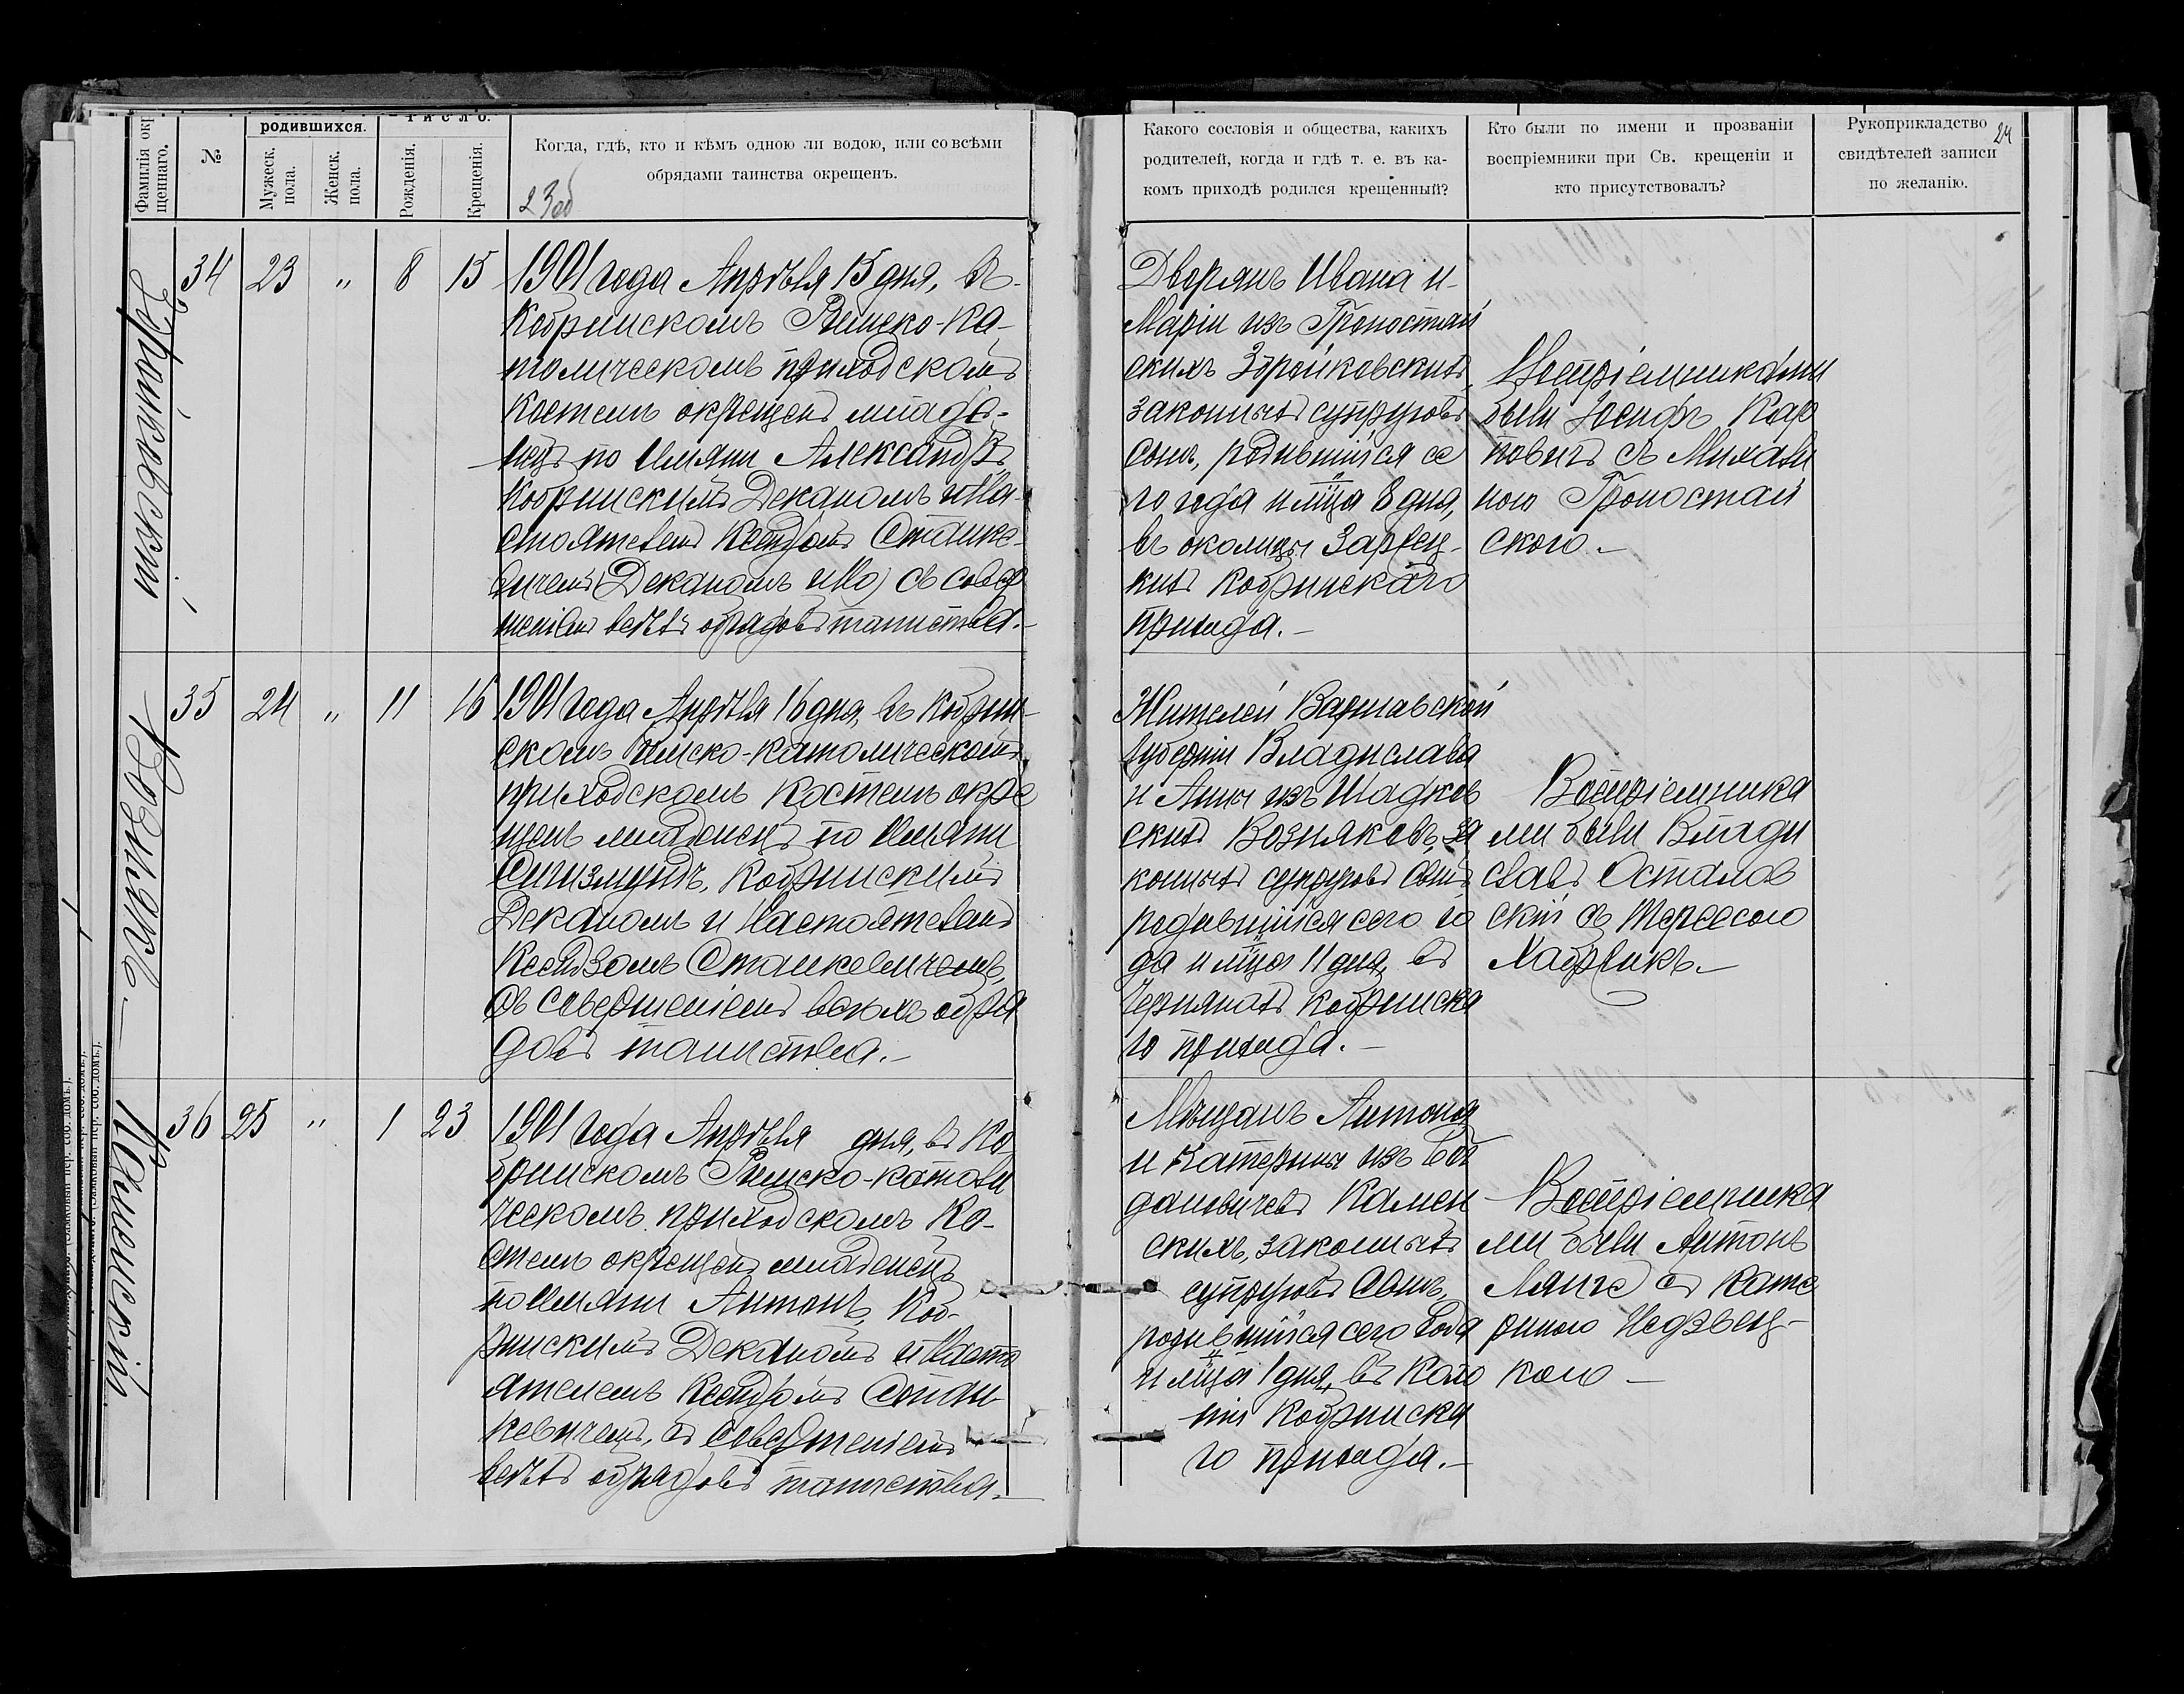 Фамилія окр
щеннаго.
№
родившихся.
Мужеск. пола.
Женск. пола.
Число.
Рожденія.
Крещенія.
Когда, гдѣ, кто и кѣмъ одною ли водою, или со всѣми
обрядами таинства окрещенъ.
23об
Какого сословія и общества, какихъ
родителей, когда и гдѣ т. е. въ ка-
комъ приходѣ родился крещенный?
Кто были по имени и прозваніи
воспріемники при Св. крещеніи и
кто присутствовалъ?
Рукоприкладство
свидѣтелей записи
по желанію.
24
34 23 " 8 15
1901 года Апрѣля 15 дня, въ
Кобринскомъ Римско-Ка-
толическомъ приходскомъ
Костелѣ окрещенъ младе-
нецъ по имяни Александръ
Кобринскимъ Деканомъ и На-
стоятелемъ Ксендзомъ Станке-
вичемъ (Деканомъ и На) съ совер
шеніемъ всѣхъ обрядовъ таинства.-
Дворянъ Ивана и
Маріи изъ Гроностай
скихъ Збройковскихъ
законныхъ супруговъ
сынъ, родившійся се
го года и мца 8 дня,
въ околицы Зарѣц-
кихъ Кобринскаго
прихода.-
Воспріемниками
были Іосифъ Кар
повичъ съ Михали
ною Гроностай
скою.-
Збройковскій
35 24 " 11 16
1901 года Апрѣля 16 дня, въ Кобрин-
скомъ Римско-Католическомъ
приходскомъ Костелѣ окре
щенъ младенецъ по имяни
Сигизмундъ, Кобринскимъ
Деканомъ и Настоятелемъ
Ксендзомъ Станкевичемъ,
съ совершеніемъ всѣхъ обря
довъ таинства.-
Жителей Варшавской
губерніи Владислава
и Анны изъ Шадков
скихъ Возняковъ, за
конныхъ супруговъ сынъ
родившійся сего го
да и мца 11 дня, въ
Кобринска
го прихода.-
Воспріемника
ми были Влади
славъ Осталов
скій съ Тересою
Хабрыкъ.-
Вознякъ.-
36 25 " 1 23
1901 года Апрѣля дня, въ Ко-
бринскомъ Римско-католи
ческомъ приходскомъ Ко-
стелѣ окрещенъ младенецъ
по имяни Антонъ, Коб-
ринскимъ Деканомъ и Насто
ятелемъ Ксендзомъ Стан-
кевичемъ, съ совершеніемъ
всѣхъ обрядовъ таинства.-
Мѣщанъ Антона
и Катерины изъ Бог
дановичевъ Камен
скихъ, законныхъ
супруговъ сынъ,
родившійся сего года
и мца 1 дня, въ
Кобринска
го прихода.-
Воспріемника
ми были Антонъ
Лянге съ Кате
риною Недзвец-
кою -
Каменскій